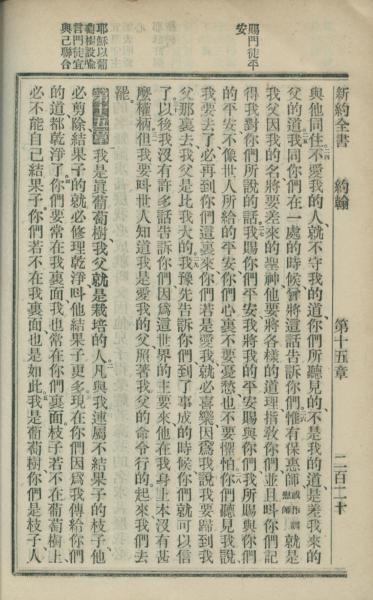 新約全書 約翰 第十五章 二百二十
賜門徒平
安
耶穌以葡
萄樹設喻
言門徒宜
與己聯合
與他同住不愛我的人就不守我的道你們所聽見的不是我的道是差我來的
父的道我同你們在一處的時候曾將這話告訴你們惟有保惠師或作訓慰師就是
我父因我的名將要差來的聖神他要將各樣的道理指教你們並且叫你們記
得我對你們所說的話我賜你們平安我將我的平安賜與你們我所賜與你們
的平安不像世人所給的平安你們心裏不要憂愁也不要懼怕你們聽見我說
我要去了必再到你們這裏來你們若是愛我就必喜樂因爲我說我要歸到我
父那裏去我父是比我大的我豫先告訴你們到了事成的時候你們就可以信
了以後我沒有許多話告訴你們因爲這世界的主要來他在我身上本沒有甚
麽權柄但我要叫世人知道我是愛我的父照著我父的命令行的起來我們去
罷
第十五章 我是眞葡萄樹我父就是栽培的人凡與我連屬不結果子的枝子他
必剪除結果子的就必修理乾淨叫他結果子更多現在你們因爲我傳給你們
的道都乾淨了你們要常在我裏面我也常在你們裏面枝子若不在葡萄樹上
必不能自己結果子你們若不在我裏面也是如此我是葡萄樹你們是枝子人